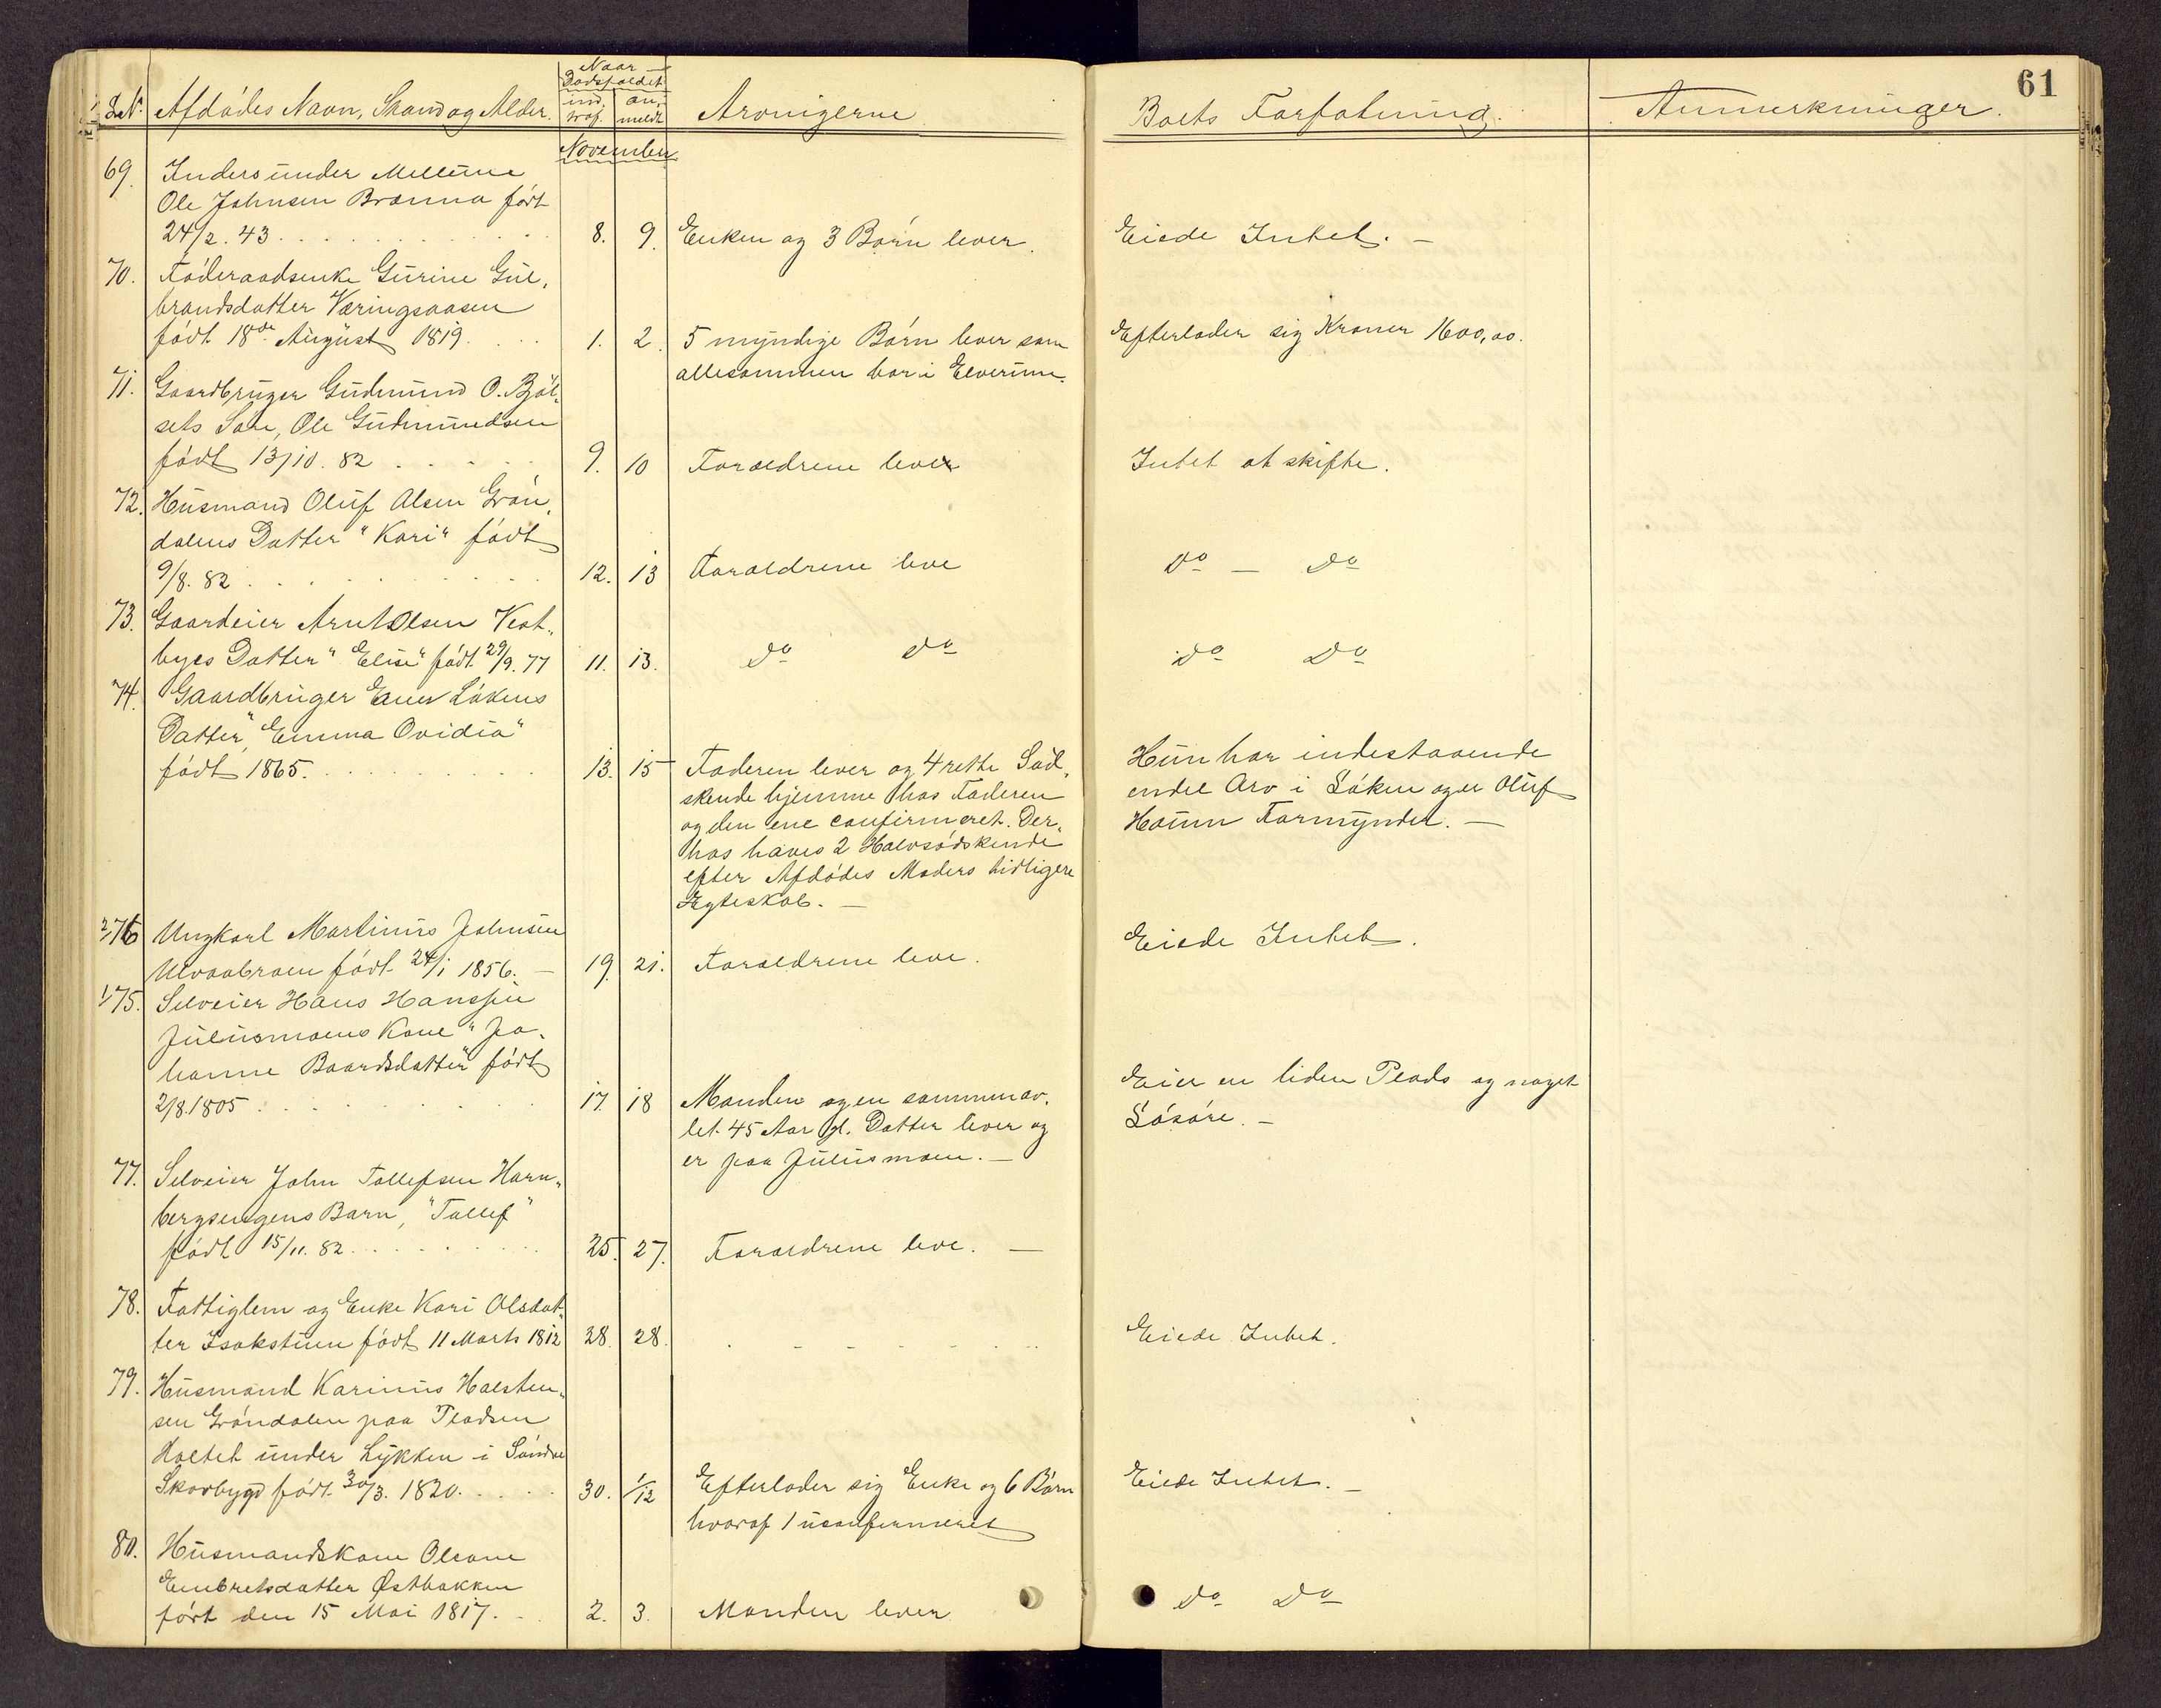 61
LN. Afdødes Navn, Stand og Alder. Naar Dødsfaldet indtraf. anmeldt Arvingerne Boets Forfatning. Anmerkninger.
November
69. Inderst under Mellem
Ole Johnsen Brænna født
24/2. 43 . . . 8. 9. Enken og 3 Børn lever. Eiede Intet. –
70. Føderaadsenke Gurine Gul„
brandsdatter Væringsaasen
født 18de August 1819. . . . 1. 2. 5 myndige Børn lever som Efterlader sig Kroner 1600,00.
allesammen bor i Elverum.
71. Gaardbruger Gudmund O. Bjøl„
sets Søn, Ole Gudmundsen
født 13/10. 82 . . . 9. 10 Forældrene lever Intet at skifte.
72. Husmand Oluf Olsen Grøn„
dalens Datter "Kari" født
9/8. 82 . . . 12. 13 Forældrene leve Do – Do
73. Gaardeier Arnt Olsen Vest„
byes Datter "Elise" født 29/9. 77 11. 13. Do Do Do Do
74. Gaardbruger Løkens
Datter "Emma Ovidia"
født 1865. . . . 13. 15 Faderen lever og 4 rette Sød„ Hun har indestaaende
skende hjemme hos Faderen endel Arv i Løken og er Oluf
og den ene confirmeret. Der„ Formynder. –
hos haves 2 Halvsødskende
efter Afdødes Moders tidligere
Egteskab. –
2/ 76 Ungkarl Martinus Johnsen Eiede Intet.
Ulvaabroen født 24/1 1856. – 19. 21. Forældrene leve.
1/ 75. Selveier Hans Hanssen
Julusmoens Kone "Jo„
hanne Baardsdatter" født
2/8. 1805 . . . 17. 18 Manden og en sammenav„ Eier en liden Plads og noget
let 45 Aar gl. Datter lever og Løsøre. –
er paa Julusmoen. –
77. Selveier John Tollefsen Horn„
bergsengens Barn, "Tollef"
født 15/11. 82 . . . 25. 27. Forældrene leve. –
78. Fattiglem og Enke Kari Olsdat„
ter Isakstuen født 11 Marts 1812 28. 28. . - - - - . .. Eiede Intet.
79. Husmand Karinus Halsten„
sen Grøndalen paa Pladsen
Holtet under Lykken i Søndre
Skovbygd født 30/3. 1820. . . . 30. 1/12 Efterlader sig Enke og 6 Børn Eiede Intet. –
hvoraf 1 uconfirmeret
80. Husmandskone Oleane
Embretsdatter Østbakken
født den 15 Mai 1817. - 2. 3. Manden lever Do Do